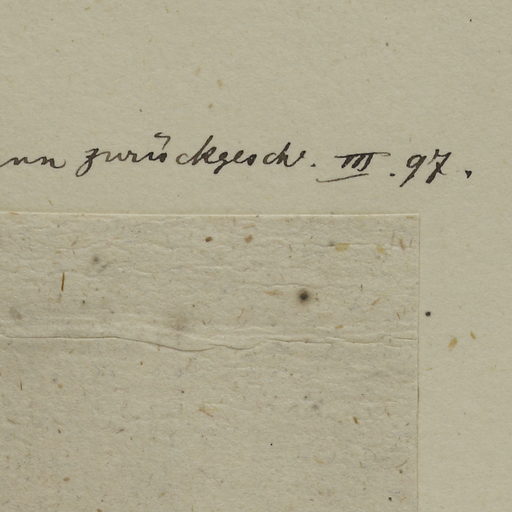 nn zurückgesch. III. 97.